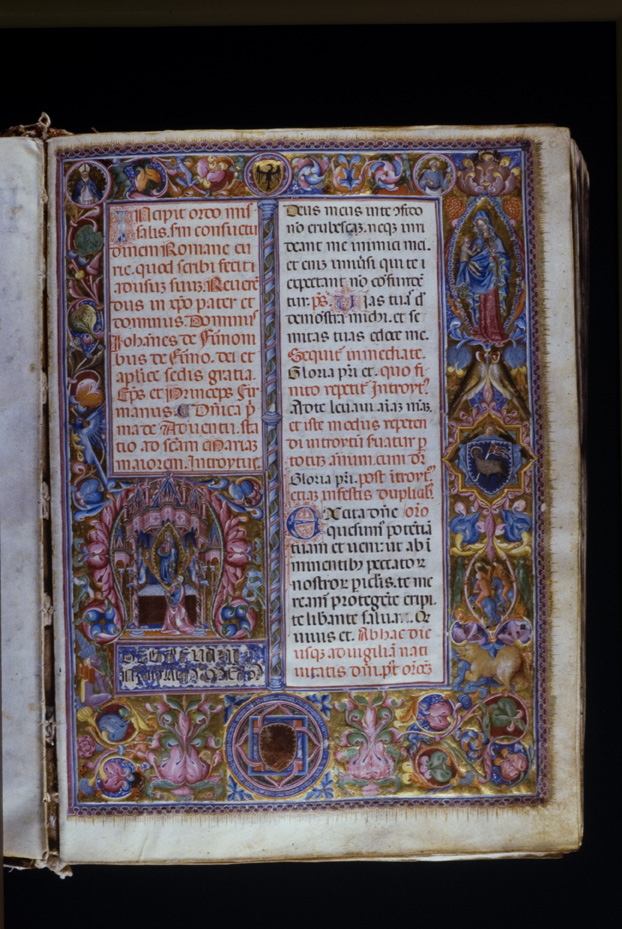 Incipit ordo mis
salis. sm consuetu
dinem Romane cu
rie. quod scribi fecit
ad usuz suuz. Reueren
dus in xpo pater et
dominus. Dominus
Johanes de Firmoni
bus de Firmo. dei et
aplice sedis gratia.
Eps et Princeps Fir
manus. Dnica p
ma de Aduentu. sta
tio ad scam Mariaz
maiorem. Introytus.
Deus meus in te ofido
no erubescaz. neqz irri
deant me inimici mei.
et eniz uniusi qui te
expectant no cofunde
tur. ps. Uias tuas d
demostra michi. et se
mitas tuas edoce me.
Sequit immediate.
Gloria pri et. quo fi
nito repetit Introyt
Ad te leuaui aiaz meaz.
et iste modus repeten
di introytu suatur p
totuz annum. cum dr
Gloria pri. post itroyt
etiaz in festis duplicib
Excita dne oro
quesumus potetia
tuam et ueni: ut ab i
minentibz peccator
nostror piclis. te me
reamr protegete eripi.
te libante saluari. Q
uiuis et. Ab hac die
usqz ad uigilia nati
uitatis dni. pt orcez